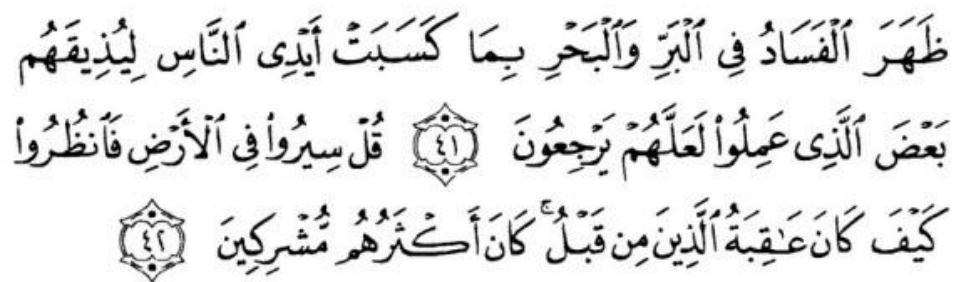 ظَهَرَ ٱلْفَسَادُ فِي ٱلْبَرِّ وَٱلْبَحْرِ بِمَا كَسَبَتْ أَيْدِى ٱلنَّاسِ لِيُذِيقَهُم
بَعْضَ ٱلَّذِى عَمِلُوا۟ لَعَلَّهُمْ يَرْجِعُونَ ٤١ قُلْ سِيرُوا۟ فِى ٱلْأَرْضِ فَٱنظُرُوا۟
كَيْفَ كَانَ عَـٰقِبَةُ ٱلَّذِينَ مِن قَبْلُ ۚ كَانَ أَكْثَرُهُم مُّشْرِكِينَ ٤٢